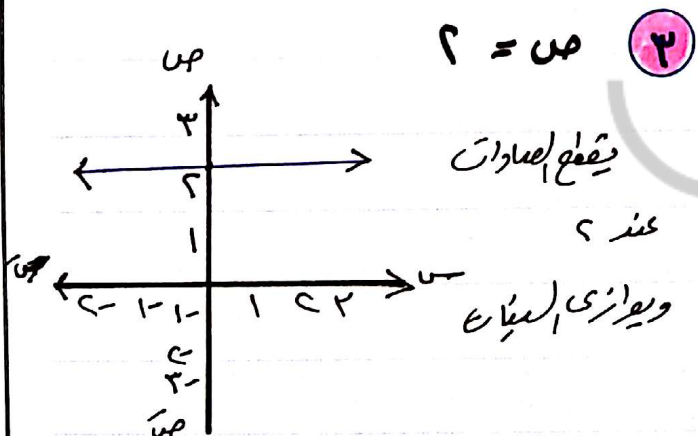 ٣ ص = ٢
يقطع الصادات
عند ٢
ويوازى السينات
ص
٣
٢
١
س َ -٢ -١ ١ ٢ ٣ س
-١
-٢
-٣
ص َ